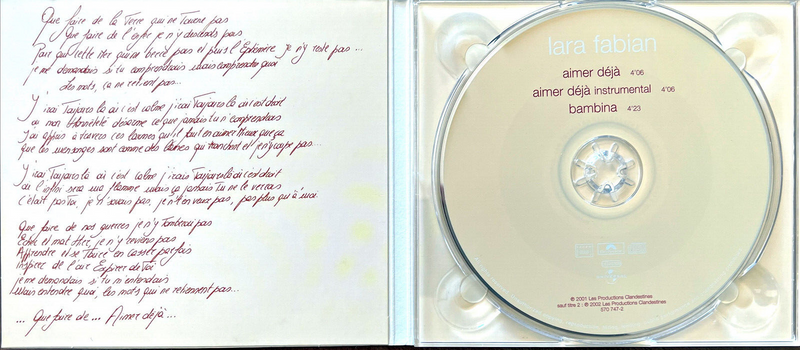 Que faire de la Terre qui ne tourne pas
Que faire de l'astre je n'y descends pas
Pair que cette mer qui ne berce pas et puis l'Ephémère je n'y reste pas ...
je me demandais si tu comprendrais mais comprendre quoi
Les mots, ça ne retient pas...
J'irai Toujours là où c'est calme j'irai Toujours là où c'est droit
où mon désarme ce que jamais tu n'comprendras
J'ai appris à travers ces larmes qu'il faut en aimer mieux que ça
que les mensonges sont comme des lames qui tranchent et je n'coupe pas...
J'irai Toujours là où c'est calme j'irai Toujours là où c'est droit
où l'infini sera ma flamme mais ça jamais tu ne le verras
c'était pas Toi, je n'savais pas, je n't'en veux pas, pas plus qu'à moi
Que faire de nos guerres je n'y tomberai pas
Echec et mat Hier, je n'y reviens pas
Apprendre et se Taire en casser parfois
Inspire de l'air Expirer de Toi
je me demandais si tu m'entendais
Mais entendre quoi, les mots qui ne reviennent pas...
... Que faire de ... Aimer déjà ...
lara fabian
aimer déjà 4'06
aimer déjà instrumental 4'06
bambina 4'23
℗ 2001 Les Productions Clandestines
sauf titre 2 : ℗ 2002 Les Productions Clandestines
570 747-2